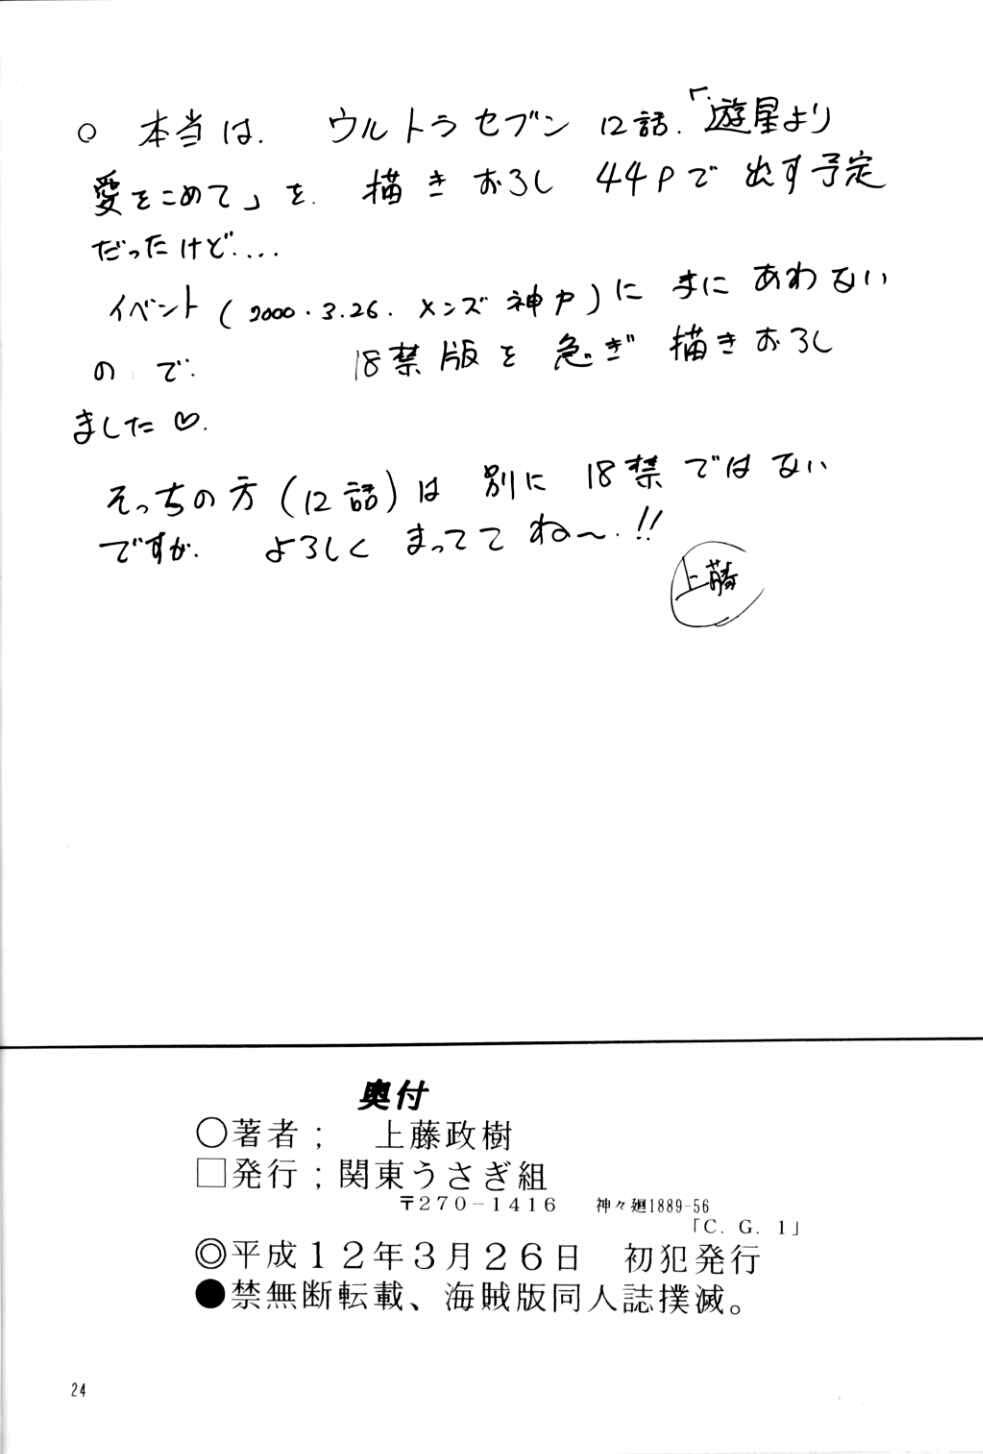 ○ 本当は. ウルトラセブン 12話.「遊星より
愛をこめて」を. 描きおろし 44Pで 出す予定
だったけど....
イベント(2000.3.26.メンズ神戸)に まにあわない
ので. 18禁版を 急ぎ 描きおろし
ました♡.
そっちの方(12話)は 別に 18禁ではない
ですが. よろしく まってて ね〜.!!
上藤
奥付
○著者；　上藤政樹
□発行；関東うさぎ組
〒270－1416　神々廻1889-56
「C. G. 1」
◎平成12年3月26日　初犯発行
●禁無断転載、海賊版同人誌撲滅。
24